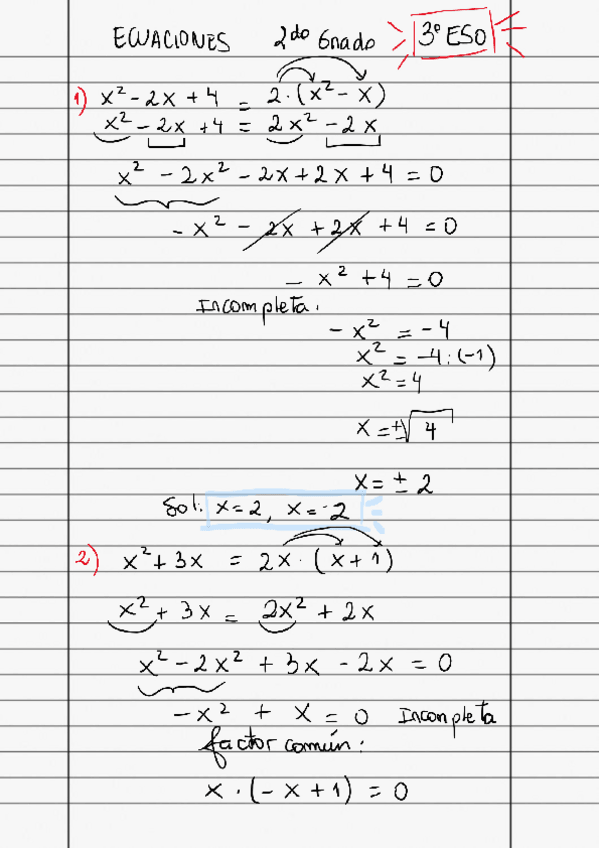 ECUACIONES 2do Grado 3º ESO
1) x² - 2x + 4 = 2·(x² - x)
x² - 2x + 4 = 2x² - 2x
x² - 2x² - 2x + 2x + 4 = 0
- x² - 2x + 2x + 4 = 0
- x² + 4 = 0
Incompleta.
- x² = -4
x² = -4:(-1)
x² = 4
x = ±√4
x = ± 2
Sol: x=2, x=-2
2) x² + 3x = 2x·(x+1)
x² + 3x = 2x² + 2x
x² - 2x² + 3x - 2x = 0
- x² + x = 0 Incompleta
factor común:
x · (-x+1) = 0